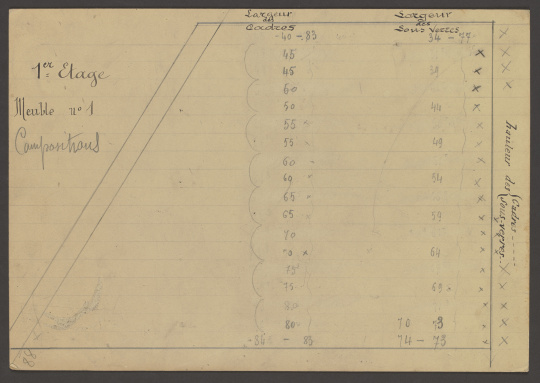 Largeur des Cadres
Largeur des Sous Verres
1er Etage
Meuble no 1
Compositions
40 - 83 34 - 77
45
45 39
50
50 44
55
55 49
60
60 54
65
65 59
70
70 64
75
75 69
80
80 70 73
83 74 - 73
hauteur des Cadres
Sous-verres